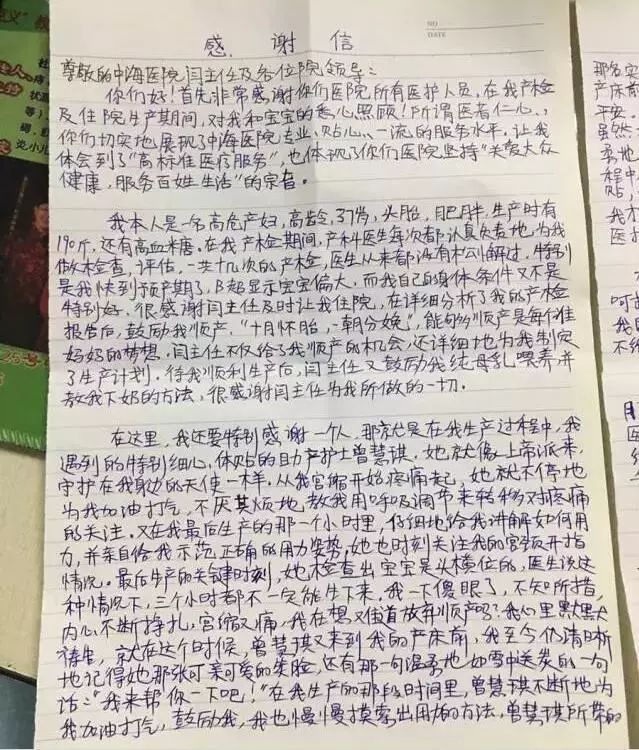 NO
DATE
感谢信
尊敬的中海医院闫主任及各位院领导：
你们好！首先非常感谢你们医院所有医护人员，在我产检
及住院生产期间，对我和宝宝的悉心照顾！所谓医者仁心，
你们切实地展现了中海医院专业、贴心、一流的服务水平，让我
体会到了“高标准医疗服务”，也体现了你们医院坚持“关爱大众
健康，服务百姓生活”的宗旨。
我本人是一名高危产妇，高龄，37岁，头胎，肥胖，生产时有
190斤，还有高血糖。在我产检期间，产科医生每次都认真负责地，为我
做检查，评估，一共十几次的产检，医生从来都没有松懈过，特别
是我快到预产期了，B超显示宝宝偏大，而我自己的身体条件又不是
特别好，很感谢闫主任及时让我住院，在详细分析了我的产检
报告后，鼓励我顺产，“十月怀胎，一朝分娩”，能够顺产是每个准
妈妈的梦想，闫主任不仅给了我顺产的机会，还详细地为我制定
了生产计划，待我顺利生产后，闫主任又鼓励我纯母乳喂养并
教我下奶的方法，很感谢闫主任为我所做的一切。
在这里，我还要特别感谢一个人，那就是在我生产过程中，我
遇到的特别细心，体贴的助产护士曾慧琪，她就像上帝派来，
守护在我身边的天使一样，从我宫缩开始疼痛起，她就不停地
为我加油打气，不厌其烦地，教我用呼吸调节来转移对疼痛
的关注。又在我最后生产的那一个小时里，仔细地给我讲解如何用
力，并亲自给我示范正确的用力姿势，她也时刻关注我的宫颈开指
情况。最后生产的关键时刻，她检查出宝宝是头横位的，医生说这
种情况下，三个小时都不一定能生下来，我一下傻眼了，不知所措，
内心不断挣扎，宫缩又痛，我在想又住道放弃顺产吗？我心里默默大
祷告，就在这个时候，曾慧琪又来到我的产床前，我至今仍清晰
地记得她那张可亲可爱的笑脸，还有那一句温柔地如雪中送炭的一句
话：“我来帮你一下吧！”在我生产的那段时间里，曾慧琪不断地为
我加油打气，鼓励我，我也慢慢摸索出用力的方法，曾慧琪所带的